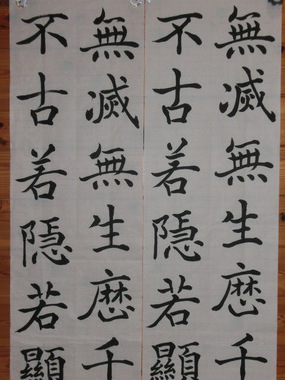 無滅無生歴千
不古若隠若顯
無滅無生歴千
不古若隠若顯